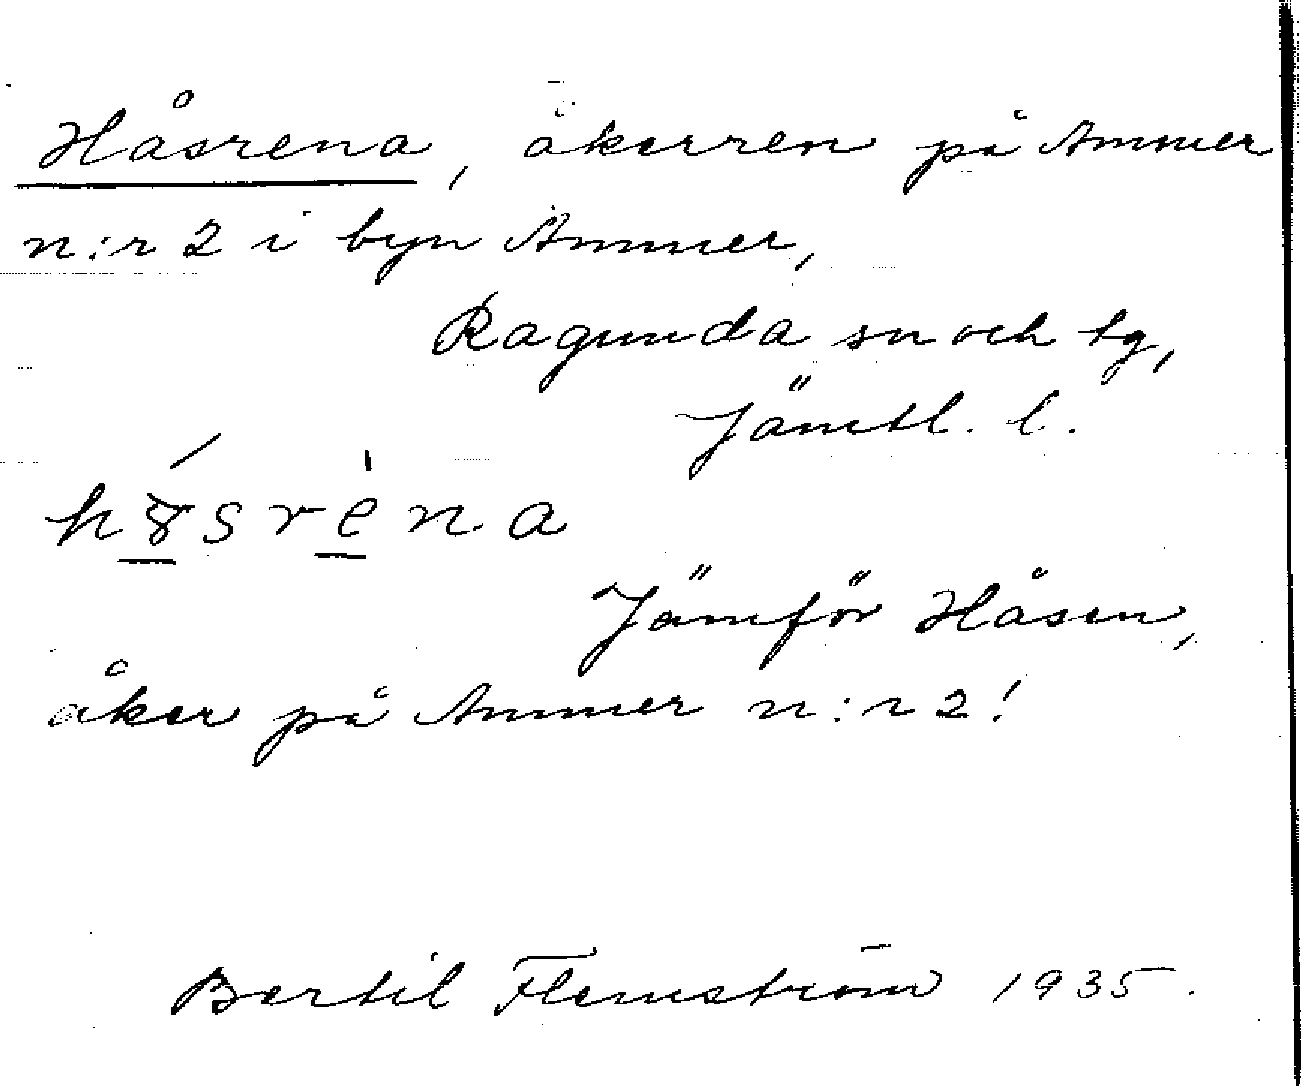 Håsrena, åkerren på Ammer
n:r 2 i byn Ammer,
Ragunda sn och tg,
Jämtl. l.
Jämför Håsen,
åker på Ammer n:r 2!
Bertil Flemström 1935.